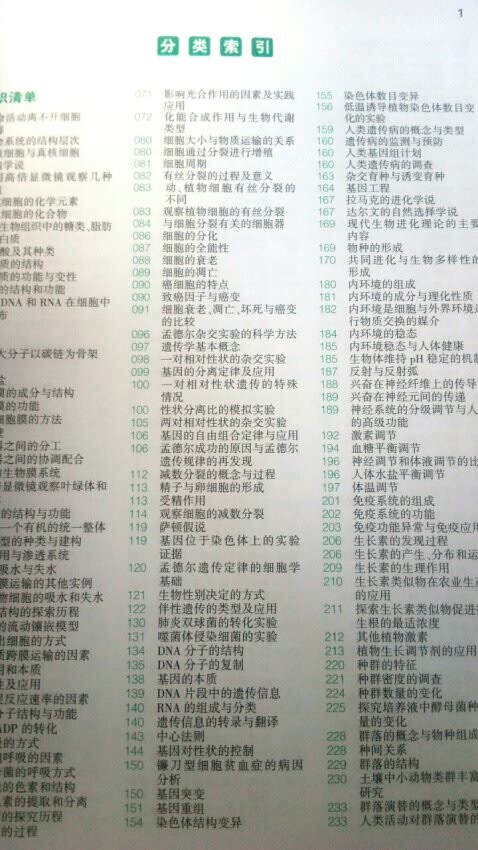 1
分类索引
识清单
命活动离不开细胞
系统的结构层次
核细胞与真核细胞
胞学说
高倍显微镜观察几种
胞的化学元素
细胞的化合物
生物组织中的糖类、脂肪
白质
酸及其种类
质的结构
质的功能与变性
的结构和功能
DNA 和 RNA 在细胞中
布
大分子以碳链为骨架
盐
膜的成分与结构
膜的功能
细胞膜的方法
器之间的分工
器之间的协调配合
的生物膜系统
倍显微镜观察叶绿体和
的结构与功能
一个有机的统一整体
型的种类与建构
用与渗透系统
吸水与失水
膜运输的其他实例
物细胞的吸水和失水
结构的探索历程
的流动镶嵌模型
出细胞的方式
质跨膜运输的因素
用和本质
性及应用
促反应速率的因素
分子结构与功能
ADP 的转化
吸的方式
胞呼吸的因素
母菌的呼吸方式
的色素和结构
色素的提取和分离
的探究历程
的过程
071 影响光合作用的因素及实践
应用
072 化能合成作用与生物代谢
类型
080 细胞大小与物质运输的关系
080 细胞通过分裂进行增殖
081 细胞周期
082 有丝分裂的过程及意义
083 动、植物细胞有丝分裂的
不同
083 观察植物细胞的有丝分裂
084 与细胞分裂有关的细胞器
086 细胞的分化
087 细胞的全能性
088 细胞的衰老
089 细胞的凋亡
090 癌细胞的特点
090 致癌因子与癌变
091 细胞衰老、凋亡、坏死与癌变
的比较
096 孟德尔杂交实验的科学方法
097 遗传学基本概念
098 一对相对性状的杂交实验
099 基因的分离定律及应用
100 一对相对性状遗传的特殊
情况
100 性状分离比的模拟实验
105 两对相对性状的杂交实验
106 基因的自由组合定律与应用
106 孟德尔成功的原因与孟德尔
遗传规律的再发现
112 减数分裂的概念与过程
113 精子与卵细胞的形成
113 受精作用
114 观察细胞的减数分裂
119 萨顿假说
119 基因位于染色体上的实验
证据
120 孟德尔遗传定律的细胞学
基础
121 生物性别决定的方式
122 伴性遗传的类型及应用
130 肺炎双球菌的转化实验
131 噬菌体侵染细菌的实验
134 DNA 分子的结构
135 DNA 分子的复制
138 基因的本质
139 DNA 片段中的遗传信息
140 RNA 的组成与分类
140 遗传信息的转录与翻译
143 中心法则
144 基因对性状的控制
150 镰刀型细胞贫血症的病因
分析
150 基因突变
151 基因重组
154 染色体结构变异
155 染色体数目变异
156 低温诱导植物染色体数目变
化的实验
159 人类遗传病的概念与类型
160 遗传病的监测与预防
160 人类基因组计划
160 人类遗传病的调查
163 杂交育种与诱变育种
164 基因工程
167 拉马克的进化学说
167 达尔文的自然选择学说
169 现代生物进化理论的主要
内容
169 物种的形成
170 共同进化与生物多样性的
形成
180 内环境的组成
181 内环境的成分与理化性质
182 内环境是细胞与外界环境进
行物质交换的媒介
184 内环境的稳态
185 内环境稳态与人体健康
185 生物体维持 pH 稳定的机制
187 反射与反射弧
188 兴奋在神经纤维上的传导
189 兴奋在神经元间的传递
189 神经系统的分级调节与人
的高级功能
192 激素调节
194 血糖平衡调节
196 神经调节和体液调节的比
196 人体水盐平衡调节
197 体温调节
201 免疫系统的组成
202 免疫系统的功能
203 免疫功能异常与免疫应用
206 生长素的发现过程
206 生长素的产生、分布和运
209 生长素的生理作用
210 生长素类似物在农业生产
的应用
211 探索生长素类似物促进
生根的最适浓度
212 其他植物激素
213 植物生长调节剂的应用
220 种群的特征
221 种群密度的调查
224 种群数量的变化
225 探究培养液中酵母菌种
量的变化
228 群落的概念与物种组成
228 种间关系
229 群落的结构
230 土壤中小动物类群丰富
研究
233 群落演替的概念与类型
233 人类活动对群落演替的